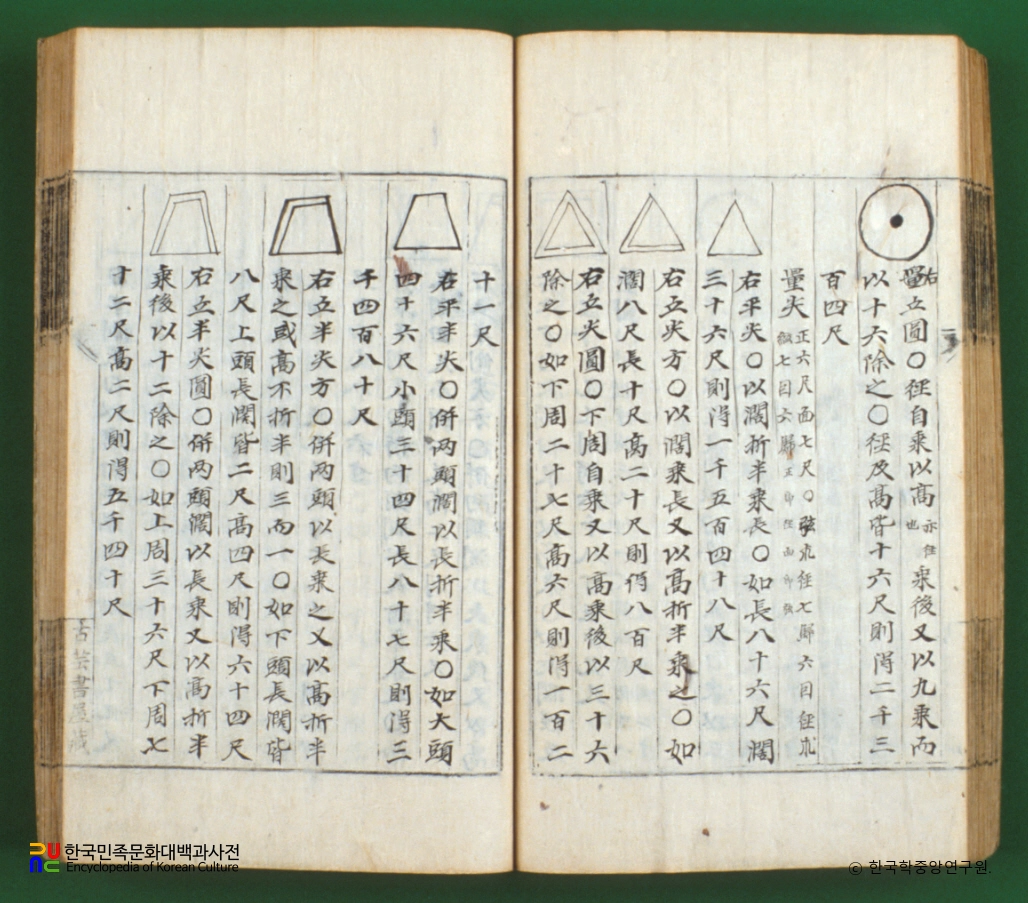 右
量立圓〇徑自乘以高亦徑也乘後又以九乘而
以十六除之〇徑及高皆十六尺則得二千三
百四尺
量尖正六尺面七尺〇弦求徑七歸六因徑求
七因六歸
右平尖〇以濶折半乘長〇如長八十六尺濶
三十六尺則得一千五百四十八尺
右立尖方〇以濶乘長又以高折半乘之〇如
濶八尺長十尺高二十尺則得八百尺
右立尖圓〇下周自乘又以高乘後以三十六
除之〇如下周二十七尺高六尺則得一百二
十一尺
右平半尖〇併兩頭濶以長折半乘〇如大頭
四十六尺小頭三十四尺長八十七尺則得三
千四百八十尺
右立半尖方〇併兩頭以長乘之又以高折半
乘之或高不折半則三而一〇如下頭長濶皆
八尺上頭長濶皆二尺高四尺則得六十四尺
右立半尖圓〇併兩頭濶以長乘又以高折半
乘後以十二除之〇如上周三十六尺下周七
十二尺高二尺則得五千四十尺
古芸書屋藏
한국민족문화대백과사전
Encyclopedia of Korean Culture
© 한국학중앙연구원